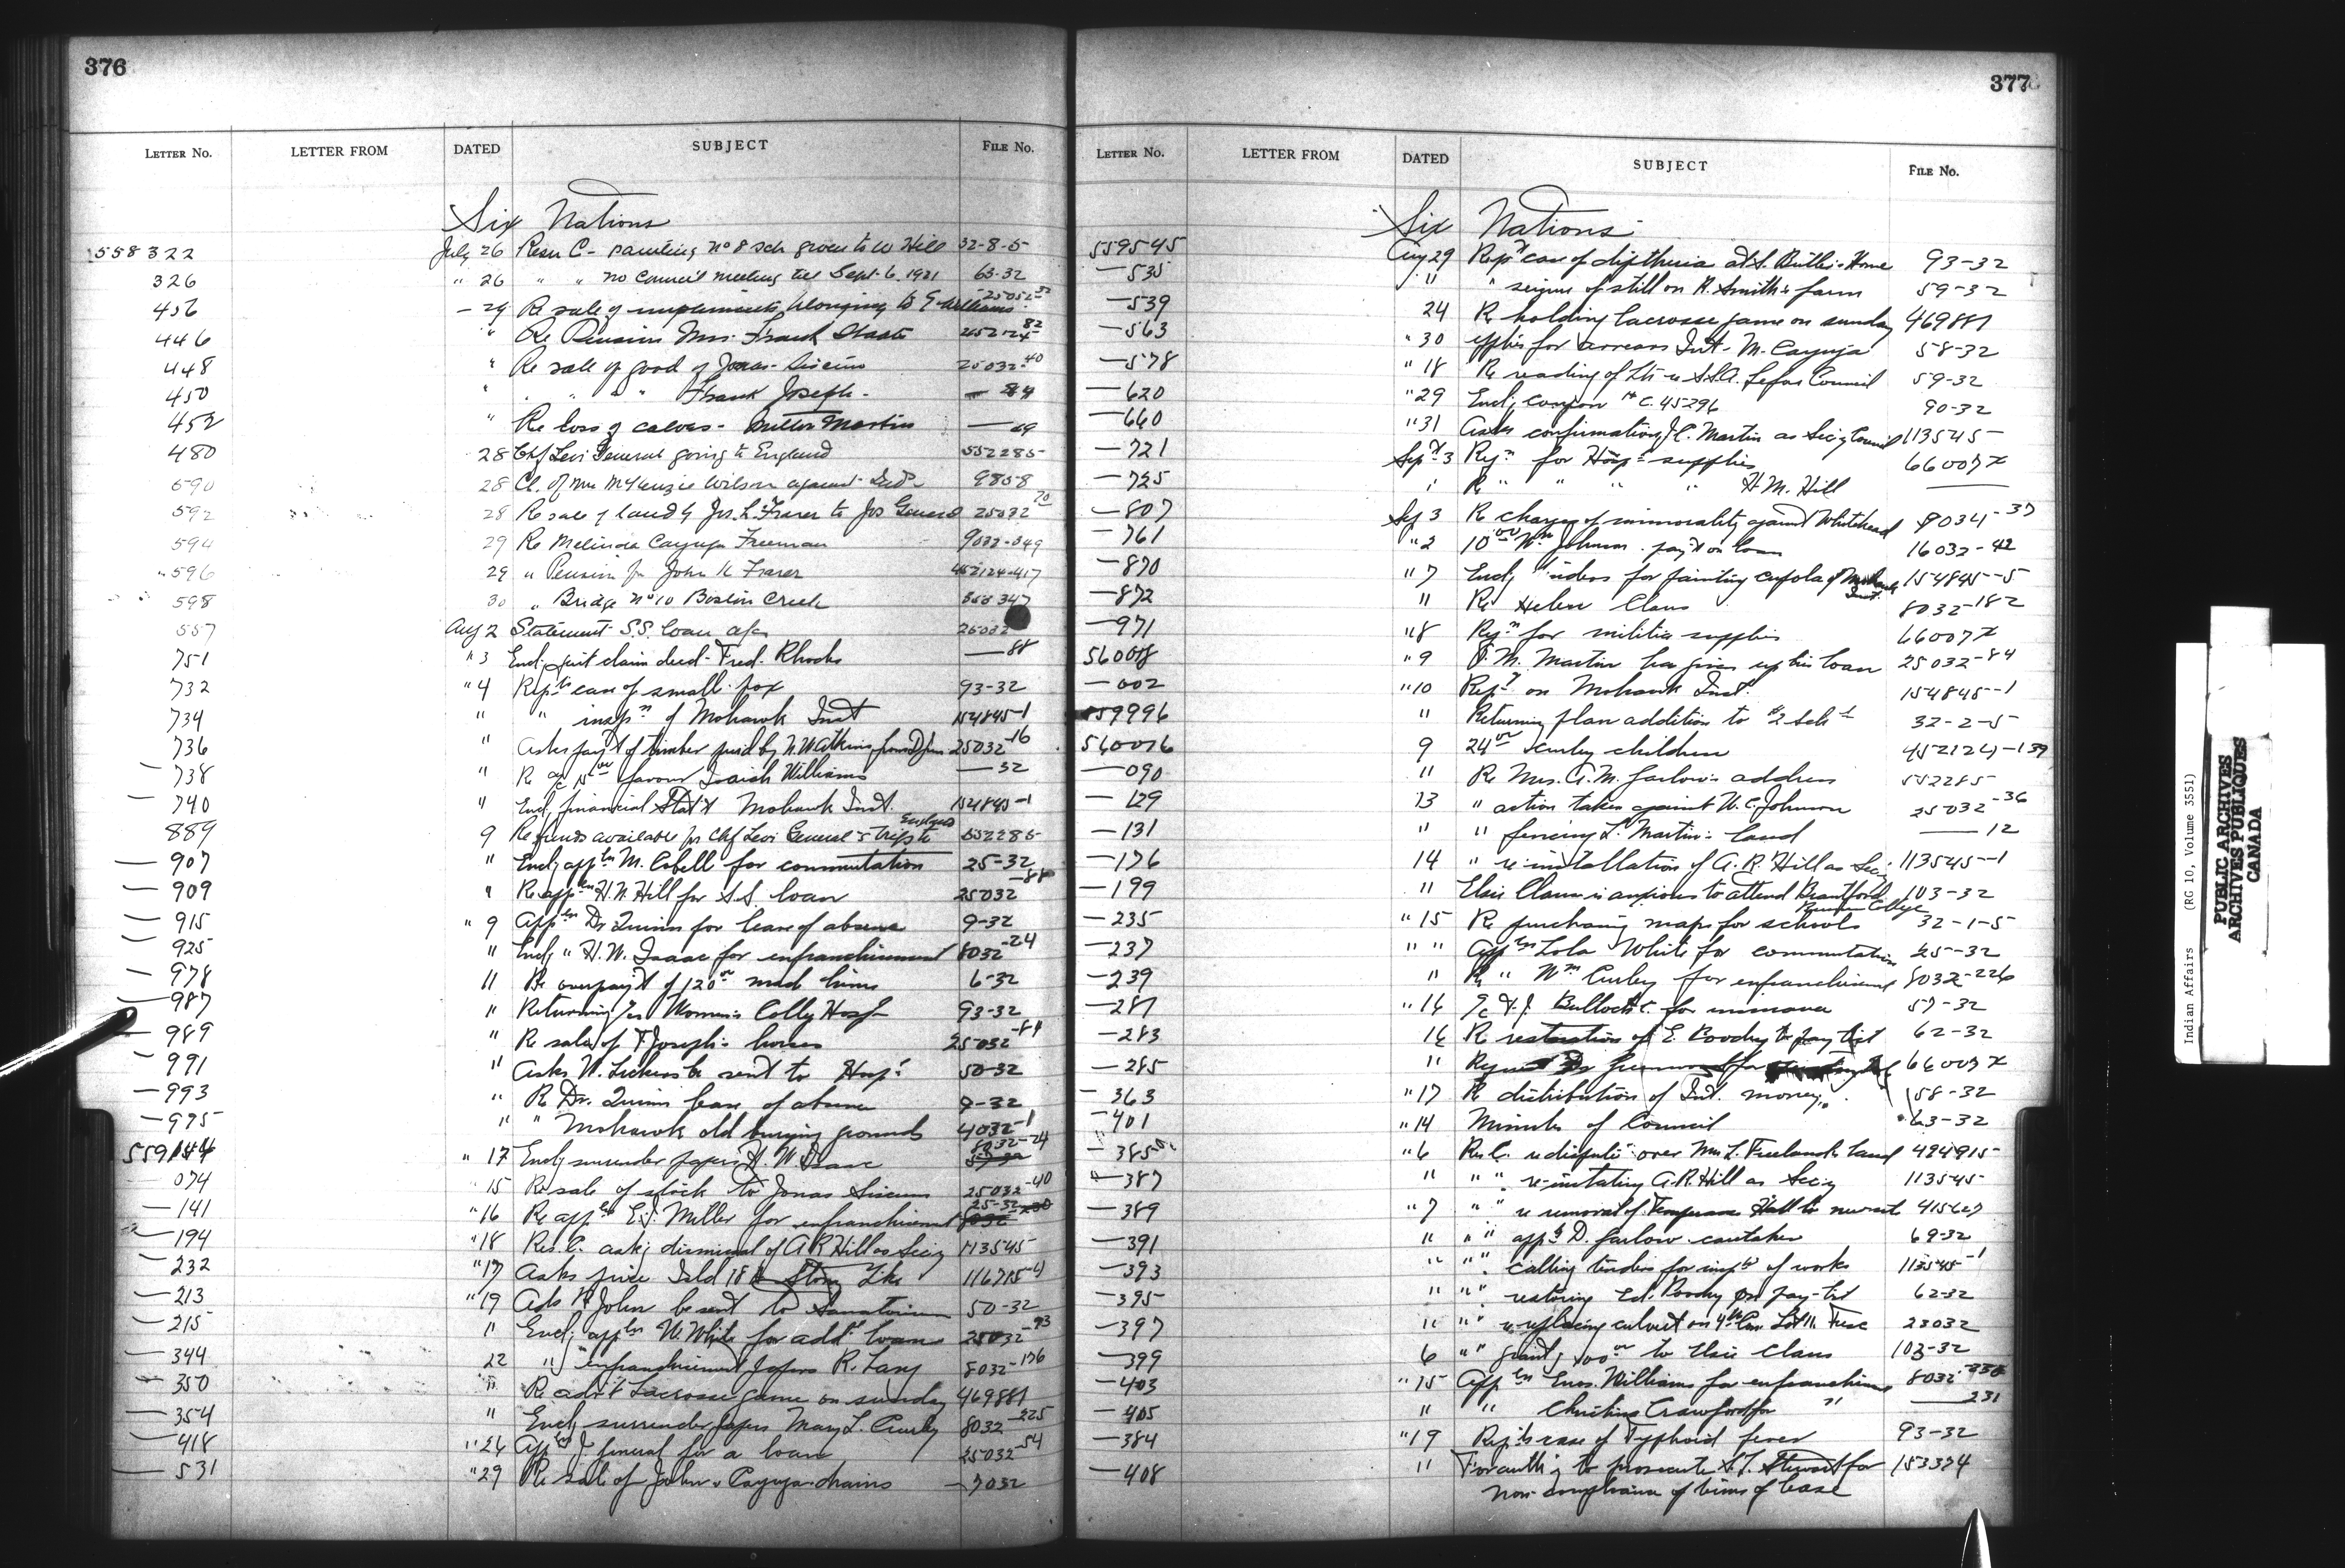 376
LETTER No. LETTER FROM DATED SUBJECT FILE No.
Six Nations
558322 July 26 Resn C- painting No 8 Sch given to W Hill 32-8-5
326 " 26 " " no Council meeting till Sept. 6. 1921 63-32
456 - 29 Re sale of implements belonging to G Williams 25032-32
446 " Re Pension Mrs. Frank Staats
448 " Re sale of good of Jonas Siscum 25032-40
450 " " " " Frank Joseph - — 84
452 " Re loss of calves - Milton Martin — 29
480 28 Chf Levi General going to England 552285
590 28 Cl. of Mrs McKenzie Wilson against Indn 9808
592 28 Re sale of land by Jos. L. Fraser to Jos General 25032-70
594 29 Re Melinda Cayuga Freeman 9032-049
596 29 " Pension for John K Fraser 452124-417
598 30 " Bridge No 10 Boston Creek
557 Aug 2 Statement S.S. loan a/cs 25032
751 " 3 Encl. quit claim deed - Fred. Rhodes — 88
732 " 4 Reptg case of small-pox 93-32
734 " " inspn of Mohawk Inst 154845-1
736 " Asks payt of timber 25032-16
— 738 " Re favour Isaiah Williams — 32
— 740 " Encl. financial Stat't Mohawk Inst. 154845-1
889 9 Re funds available for Chf Levi General's trip to England 552285
— 907 " Encl. appln M. Isbell for commutation 25-32
— 909 " Re appln H. N. Hill for S.S. loan 25032-88
— 915 " 9 Appln Dr Quinn for leave of absence 9-32
925 " Encl. " H. W. Isaac for enfranchisement 8032-24
— 978 11 Re overpayt of 120 00 made him 6-32
— 987 " Returning Women's Colly Hosp 93-32
— 989 " Re sale of F Joseph's horses 25032-84
991 " Asks W. Lickers be sent to Hosp. 50-32
— 993 " Re Dr. Quinn leave of absence 9-32
— 995 " " Mohawk old burying grounds 4032-1
559144 " 17 Encl. surrender papers H. W Isaac 8032-24
— 074 15 Re sale of stock to Jonas Siscum 25032-40
— 141 " 16 Re appln E.J. Miller for enfranchisement 25-32
— 194 " 18 Res. C. askg dismissal of A R Hill as Secy 113545
— 232 " 17 Asks price Isld 18 Stony Lake 116715-4
— 213 " 19 Asks John be sent to Sanatorium 50-32
— 215 " Encl. appln W. White for addl loan 25032-93
— 344 22 " enfranchisement papers R. Lang 8032-176
— 350 " Re adv't Lacrosse game on sunday 469881
— 354 " Encl. surrender papers Mary L. Curley 8032-225
— 418 " 26 Appln J. General for a loan 25032-54
— 531 " 29 Re sale of John Cayuga drains — 7032
377
LETTER No. LETTER FROM DATED SUBJECT FILE No.
Six Nations
559545 Aug 29 Rept case of diptheria at S. Butler's Home 93-32
— 535 " " seizure of still on R. Smith's farm 59-32
— 539 24 Re holding lacrosse game on sunday 469881
— 563 " 30 applies for arrears Int - M. Cayuga 58-32
— 578 " 18 Re reading of Council 59-32
— 620 " 29 Encl. coupon # C. 45296 90-32
— 660 " 31 Asks confirmation J.C. Martin as Secy Council 113545
— 721 Sept 3 Reqn for Hosp supplies 66007x
— 725 " Re " " " H. M. Hill —
— 807 Sep 3 Re charges of immorality against Whitehead 8034-37
— 761 " 2 10 00 Wm Johnson. pay't on loan 16032-42
— 870 " 7 Encl. tenders for painting cupola of Mohawk Inst. 154845-5
— 872 " Re Helen Claus 8032-182
— 971 " 8 Reqn for militia supplies 66007x
560008 " 9 J. M. Martin has given up his loan 25032-84
— 002 " 10 Rept on Mohawk Inst. 154845-1
559996 " Returning plan addition to #2 Schl 32-2-5
560076 9 24 00 Curley children 452124-139
— 090 " Re Mrs. A. M. Garlow's address 552285
— 129 13 " action taken against W. C. Johnson 25032-36
— 131 " " fencing L. Martin's land — 12
— 176 14 " re-installation of A. R. Hill as Secy. 113545-1
— 199 " Elsie Claus is anxious to attend Brantford Business College 103-32
— 235 " 15 Re purchasing maps for schools 32-1-5
— 237 " " Appln Lola White for commutation 25-32
— 239 " Re " Wm Curley for enfranchisement 8032-226
— 281 " 16 a/c F. J. Bullock 57-32
— 283 16 Re restoration of E. Boodry to pay list 62-32
— 285 " 66007x
— 363 " 17 Re distribution of Int. money. 58-32
— 401 " 14 Minutes of Council 63-32
— 385 " 6 Res C. re dispute over Mrs L. Freeland land 424915
— 387 " " " re-instating A.R. Hill as Secy 113545
— 389 " 7 " " re removal of Temperance Hall to new site 415627
— 391 " " " appt D. Garlow caretaker 69-32
— 393 " " " calling tenders for inspr of works 113545-1
— 395 " " " restoring Ed. Boodry on pay-list 62-32
— 397 " " " re replacing culvert on 4th Con Lot 11 Tusc 23032
— 399 6 " " grantg 100 00 to Elsie Claus 103-32
— 403 " 15 Appln Enos. Williams for enfranchismt 8032-230
— 405 " " Christine Crawford for " — 231
— 384 " 19 Reptg case of Typhoid fever 93-32
— 408 " For authy to prosecute S. T. Stewart for 153374
non-compliance of terms of lease
Indian Affairs (RG 10, Volume 3551)
PUBLIC ARCHIVES
ARCHIVES PUBLIQUES
CANADA